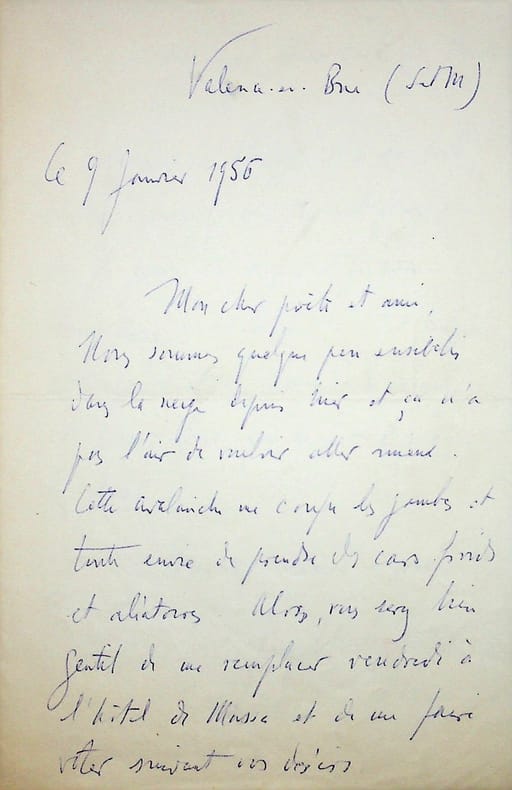 Valence-en-Brie (S-et-M)
le 9 Janvier 1956
Mon cher poète et ami,
Nous sommes quelque peu ensevelis
dans la neige depuis hier et ça n'a
pas l'air de vouloir aller mieux.
Cette avalanche me coupe les jambes et
toute envie de prendre des cars froids
et aléatoires. Alors, vous serez bien
gentil de me remplacer vendredi à
l'hôtel de Massa et de me faire
voter suivant vos désirs